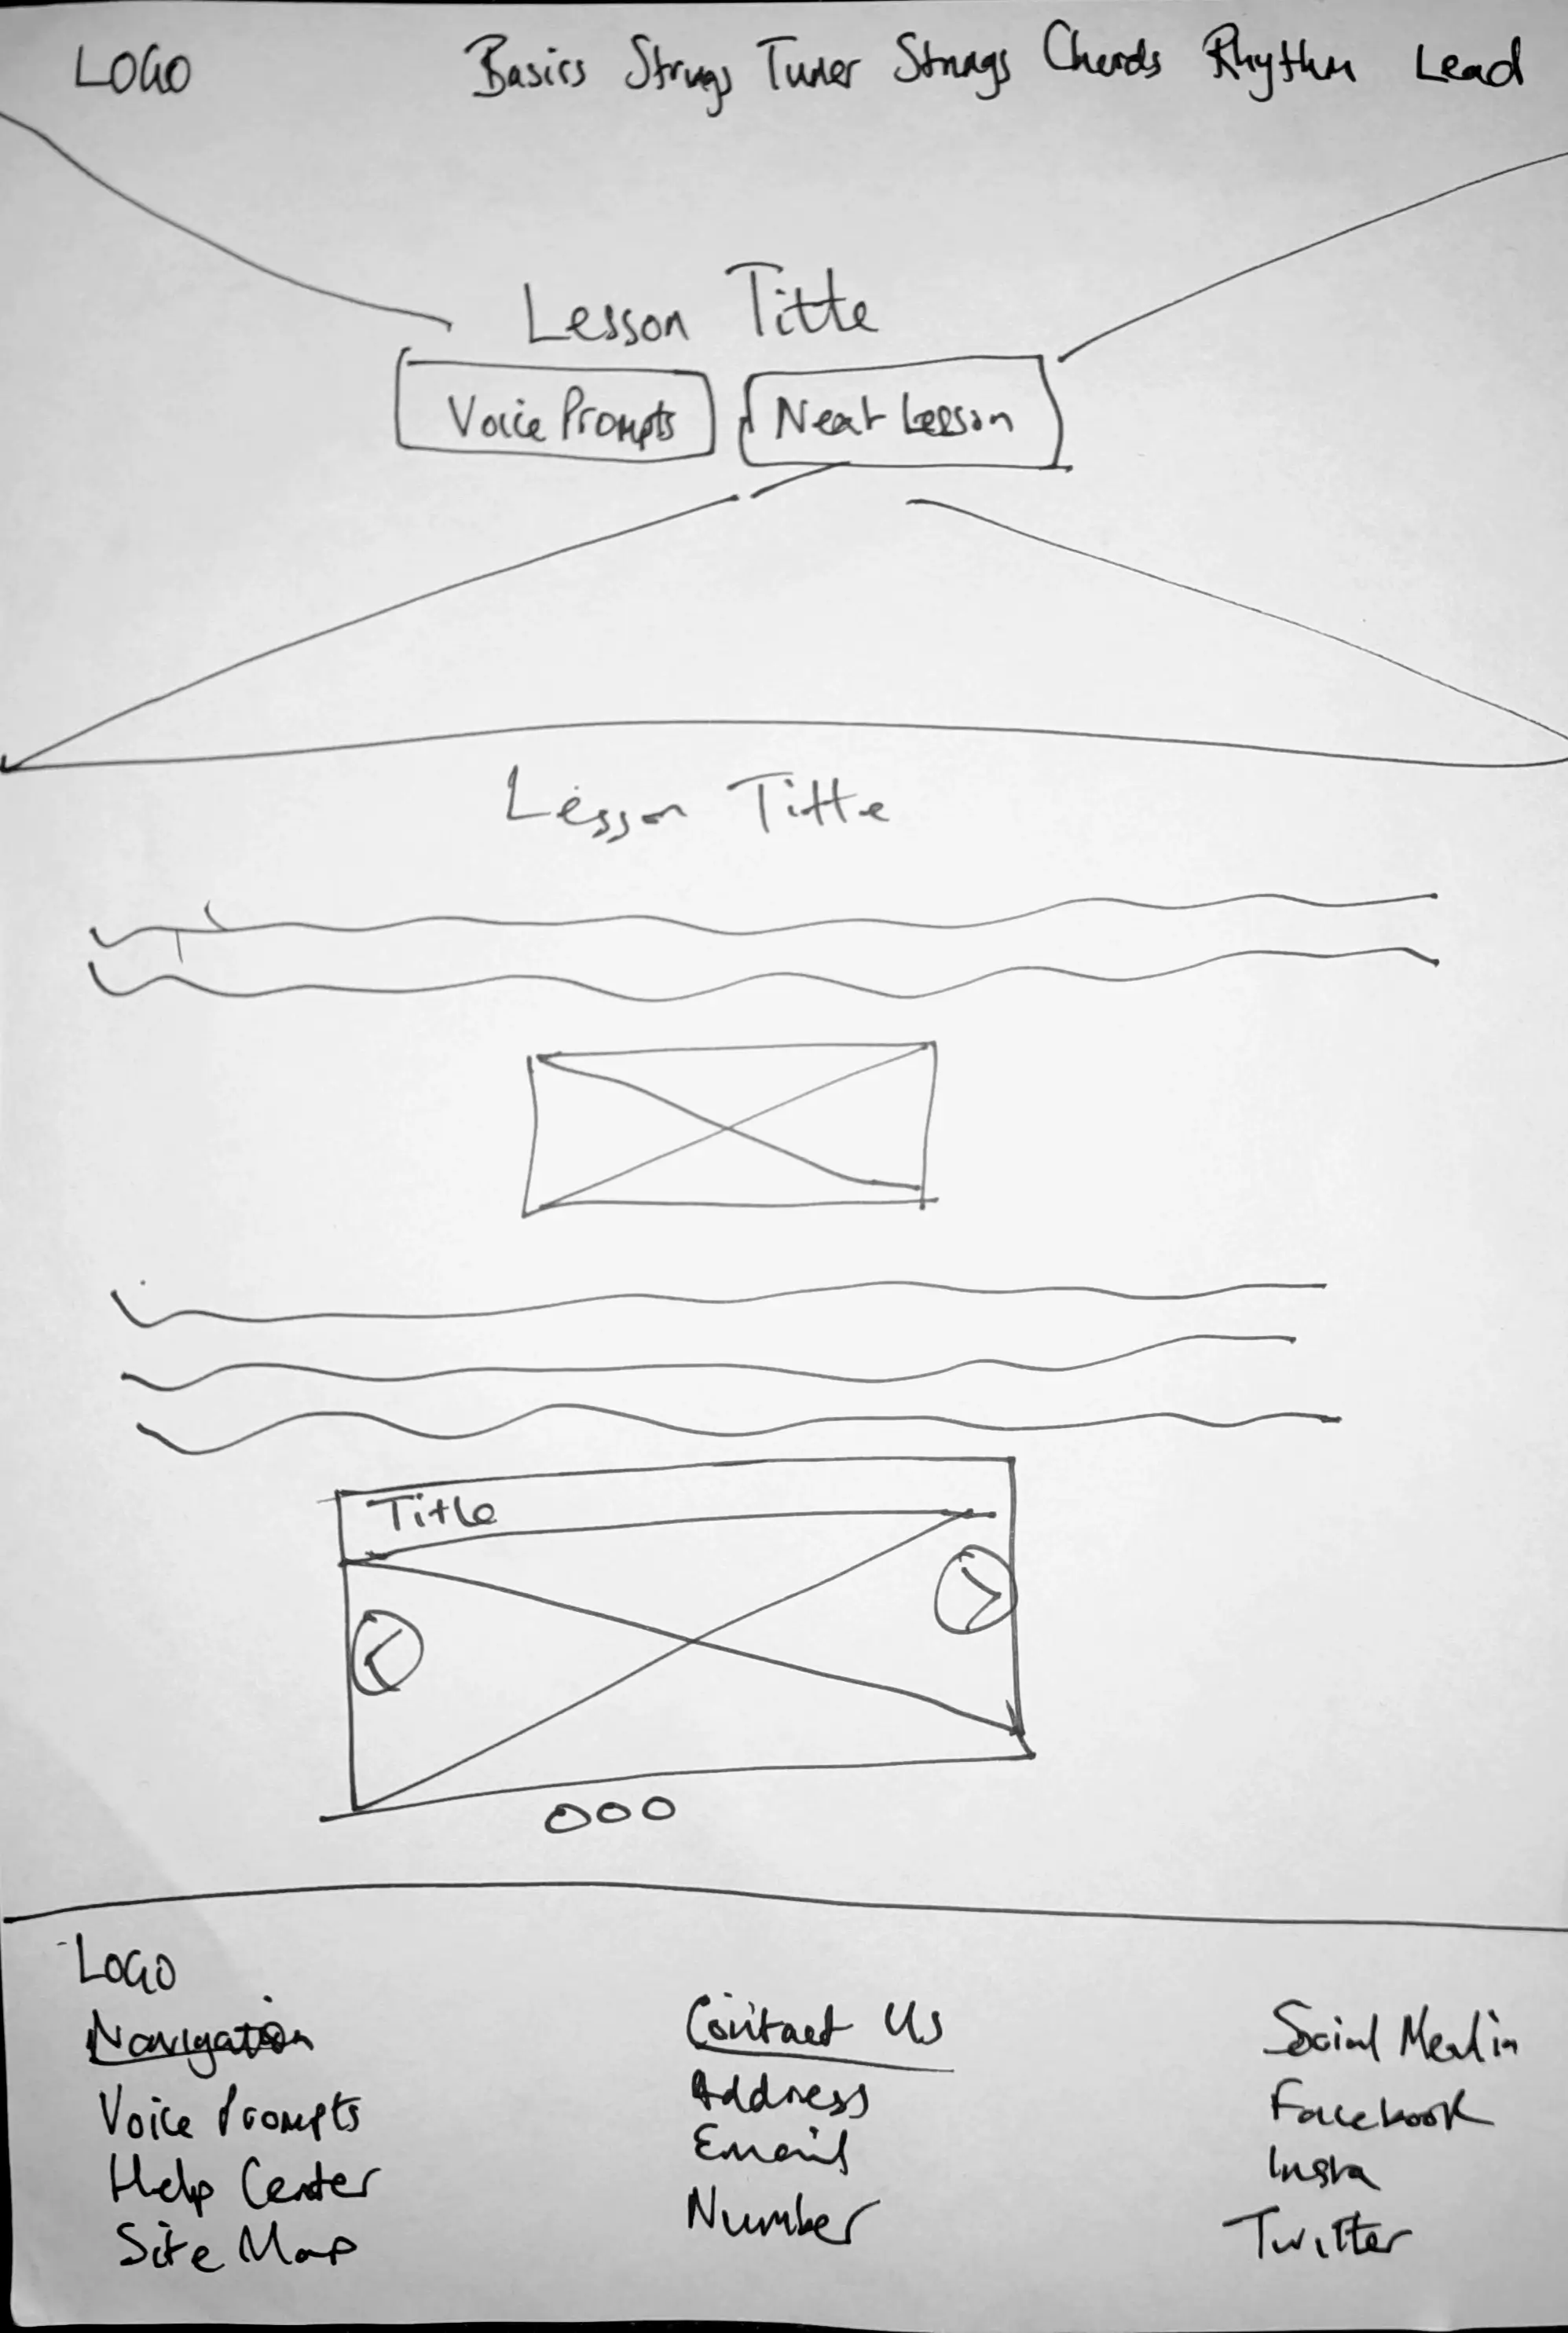 LOGO Basics Strings Tuner Strings Chords Rhythm Lead
Lesson Title
Voice Prompts Next Lesson
Lesson Title
Title
LOGO
Navigation
Voice Prompts
Help Center
Site Map
Contact Us
Address
Email
Number
Social Media
Facebook
Insta
Twitter